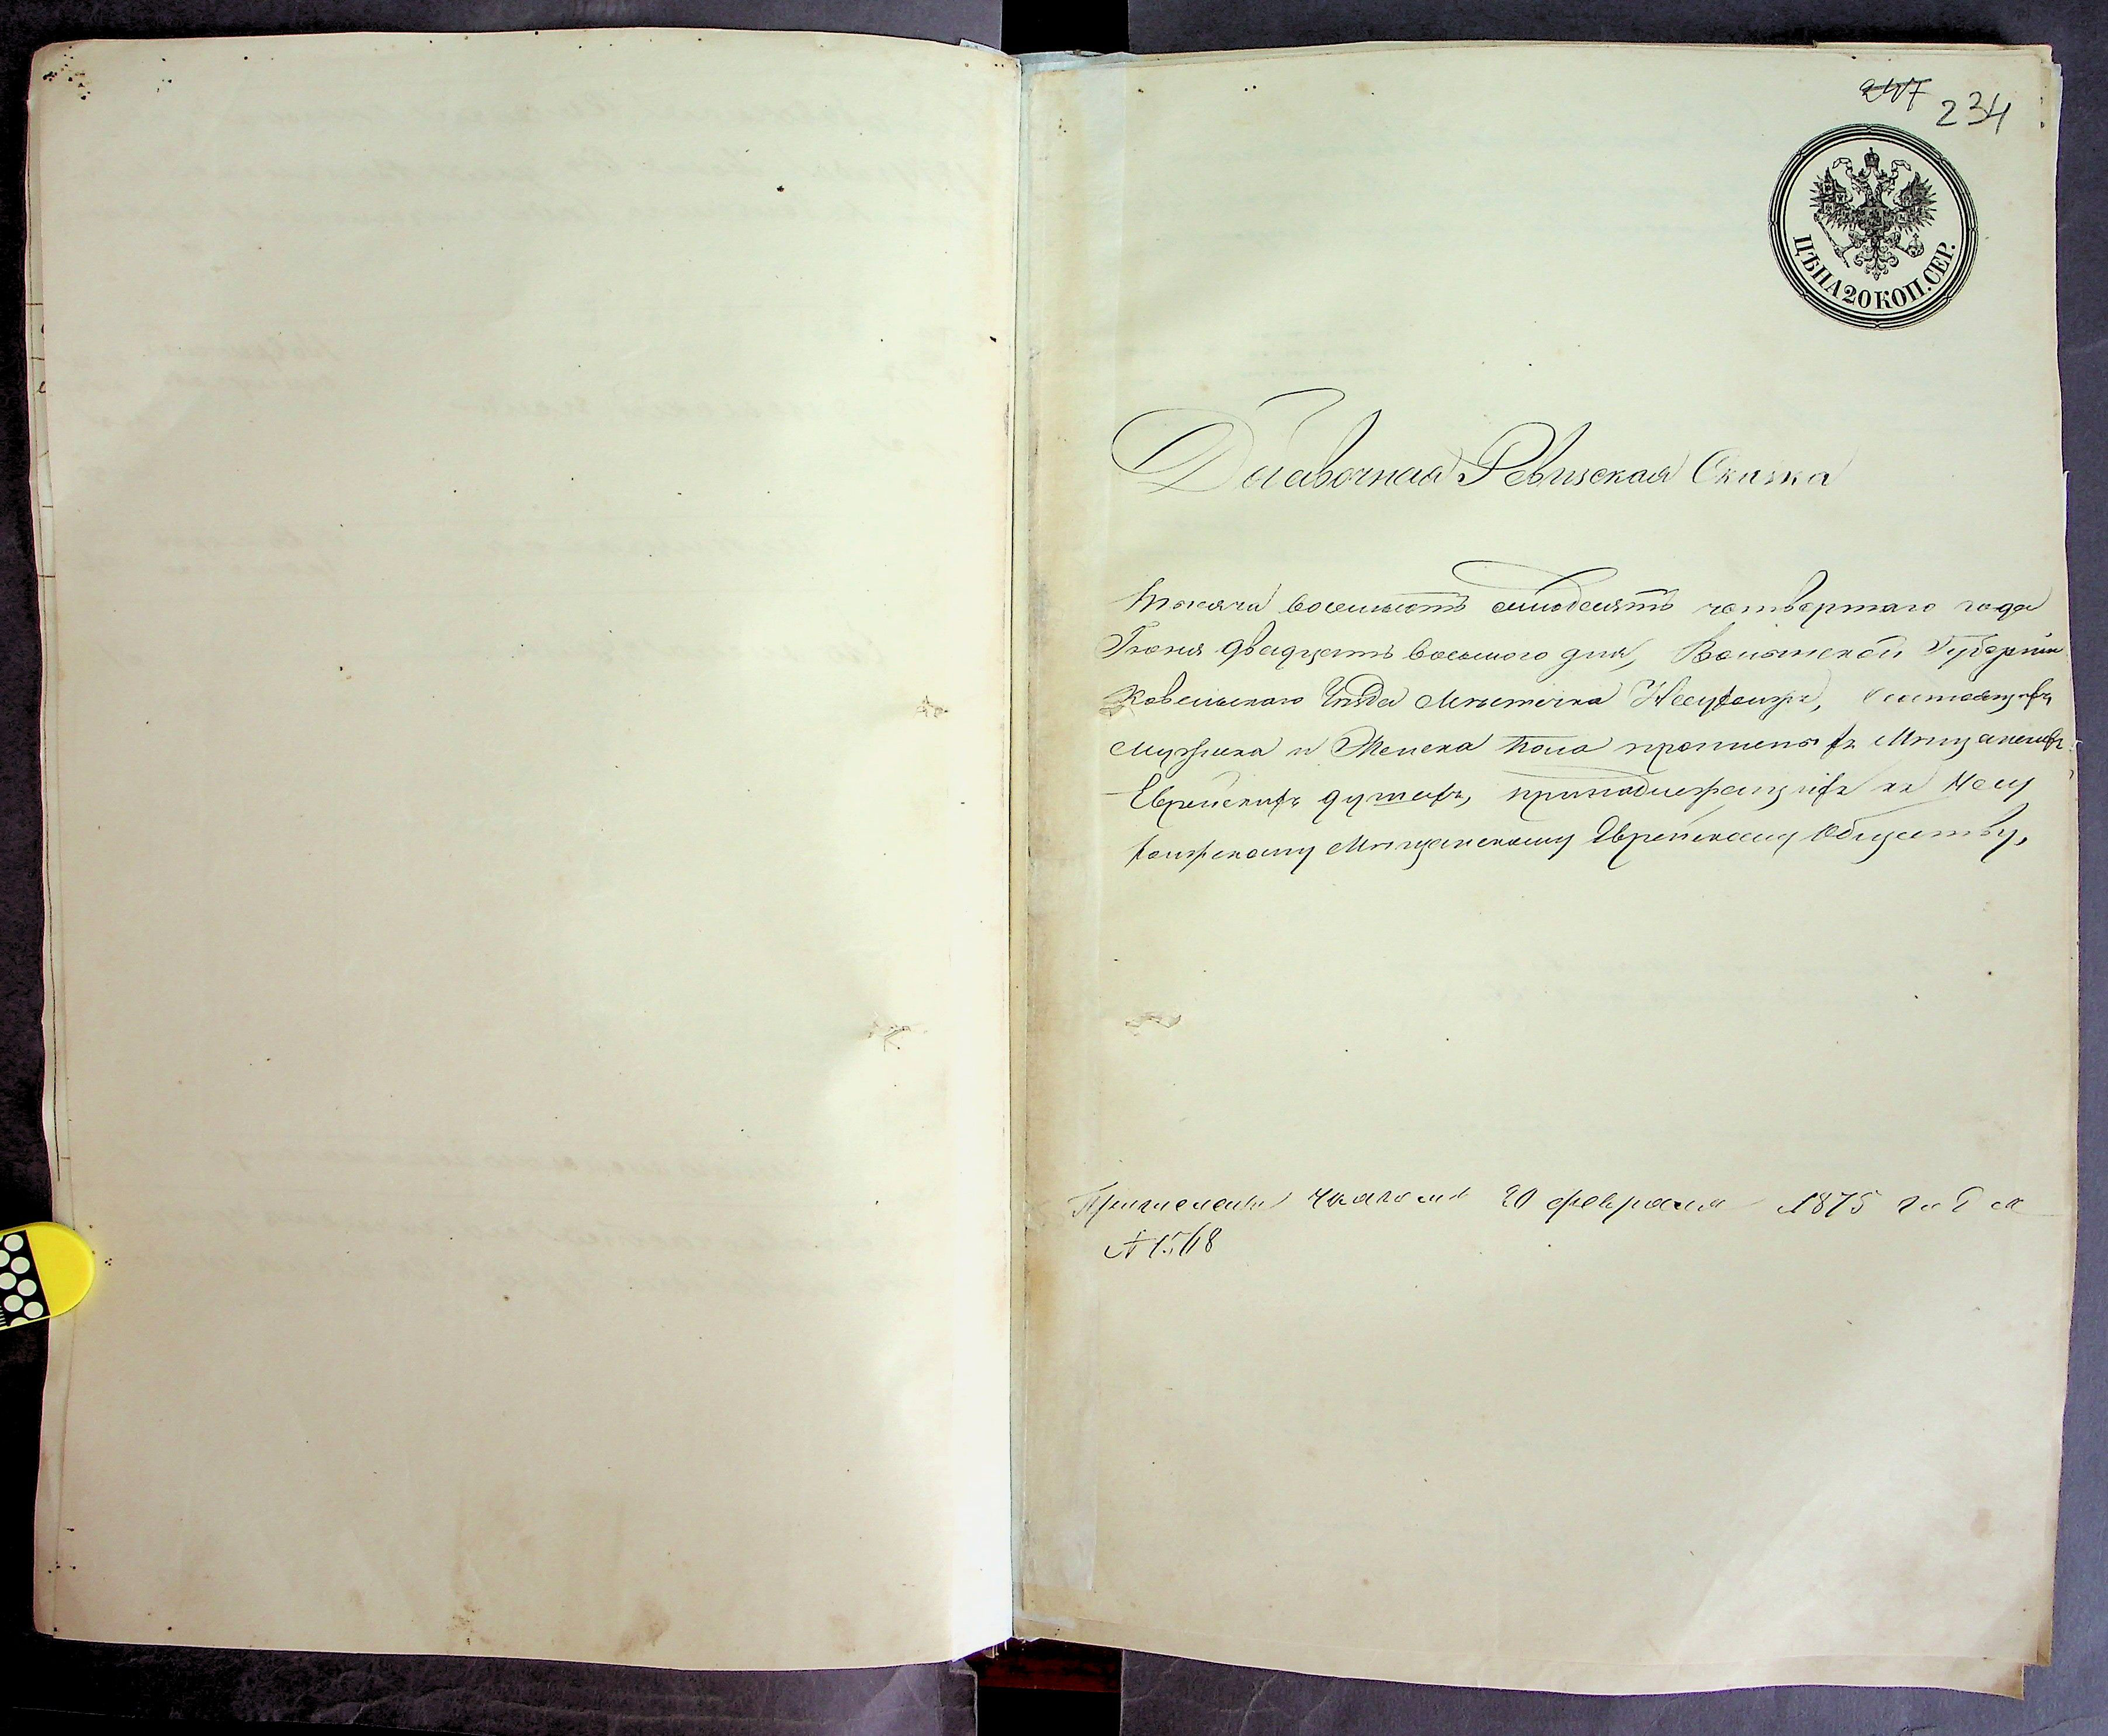 247
234
ЦѢНА 20 КОП. СЕР.
Добавочная Ревизская Сказка
Тысяча восемьсотъ семьдесятъ четвертаго года
Іюня двадцать восьмого дня, Волынской Губерніи
Ковельскаго Уѣзда Мѣстечка Несухоижъ, Состоящихъ
мужеска и Женска Пола Мѣщанскихъ
Еврейскихъ душахъ, принадлежащихъ къ Несу
хоижскому Мѣщанскому Еврейскому Обществу,
Причислены Указомъ 20 февраля 1875 года
№ 1568